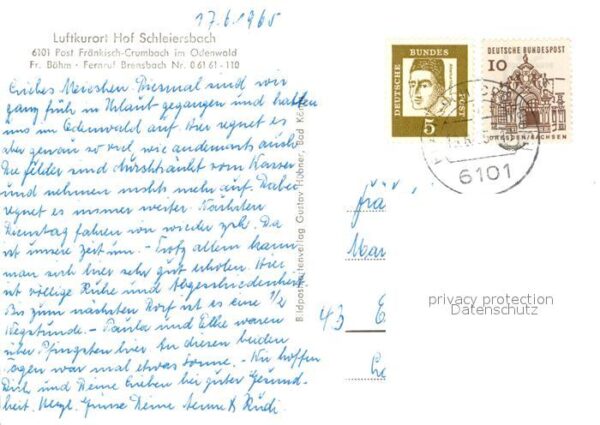 17.6.1965
Luftkurort Hof Schleiersbach
6101 Post Fränkisch-Crumbach im Odenwald
Fr. Böhm · Fernruf Brensbach Nr. 0 61 61 - 110
Liebes Meischen. Diesmal sind wir
ganz früh in Urlaub gegangen und hatten
uns im Odenwald auf. Hier regnet es
aber genau so viel, wie andernorts auch.
Die Felder sind durchtränkt vom Wasser
und nehmen nichts mehr auf. Dabei
regnet es immer weiter. Nächsten
Dienstag fahren wir wieder zrk. Da
ist unsere Zeit um. - Trotz allem kann
man sich hier sehr gut erholen. Hier
ist völlige Ruhe und Abgeschiedenheit
Bis zum nächsten Dorf ist es eine 1/2
Wegstunde. - Paula und Elke waren
über Pfingsten hier. An diesen beiden
Tagen war mal etwas Sonne. - Wir hoffen
Dich und Deine Lieben bei guter Gesund-
heit. Herzl. Grüsse Deine Änne & Rudi.
Bildpostkartenverlag Gustav Hübner, Bad Kö
DEUTSCHE
BUNDES
POST
5
10
DEUTSCHE BUNDESPOST
DRESDEN/SACHSEN
6101
Frä
Mar
43 E
privacy protection
Datenschutz